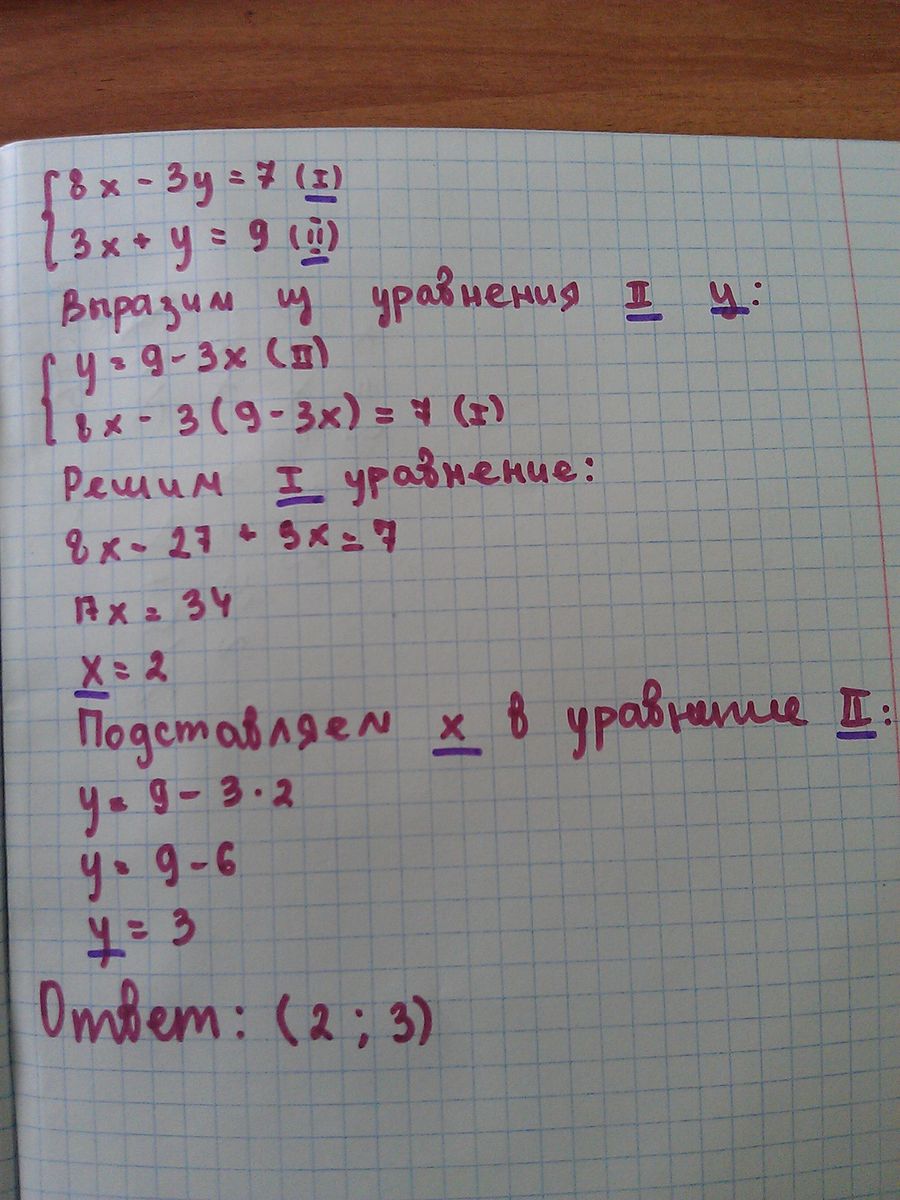 8x - 3y = 7 (I)
3x + y = 9 (II)
Выразим из уравнения II y:
y = 9 - 3x (II)
8x - 3(9 - 3x) = 7 (I)
Решим I уравнение:
8x - 27 + 9x = 7
17x = 34
x = 2
Подставляем x в уравнение II:
y = 9 - 3 · 2
y = 9 - 6
y = 3
Ответ: (2 ; 3)